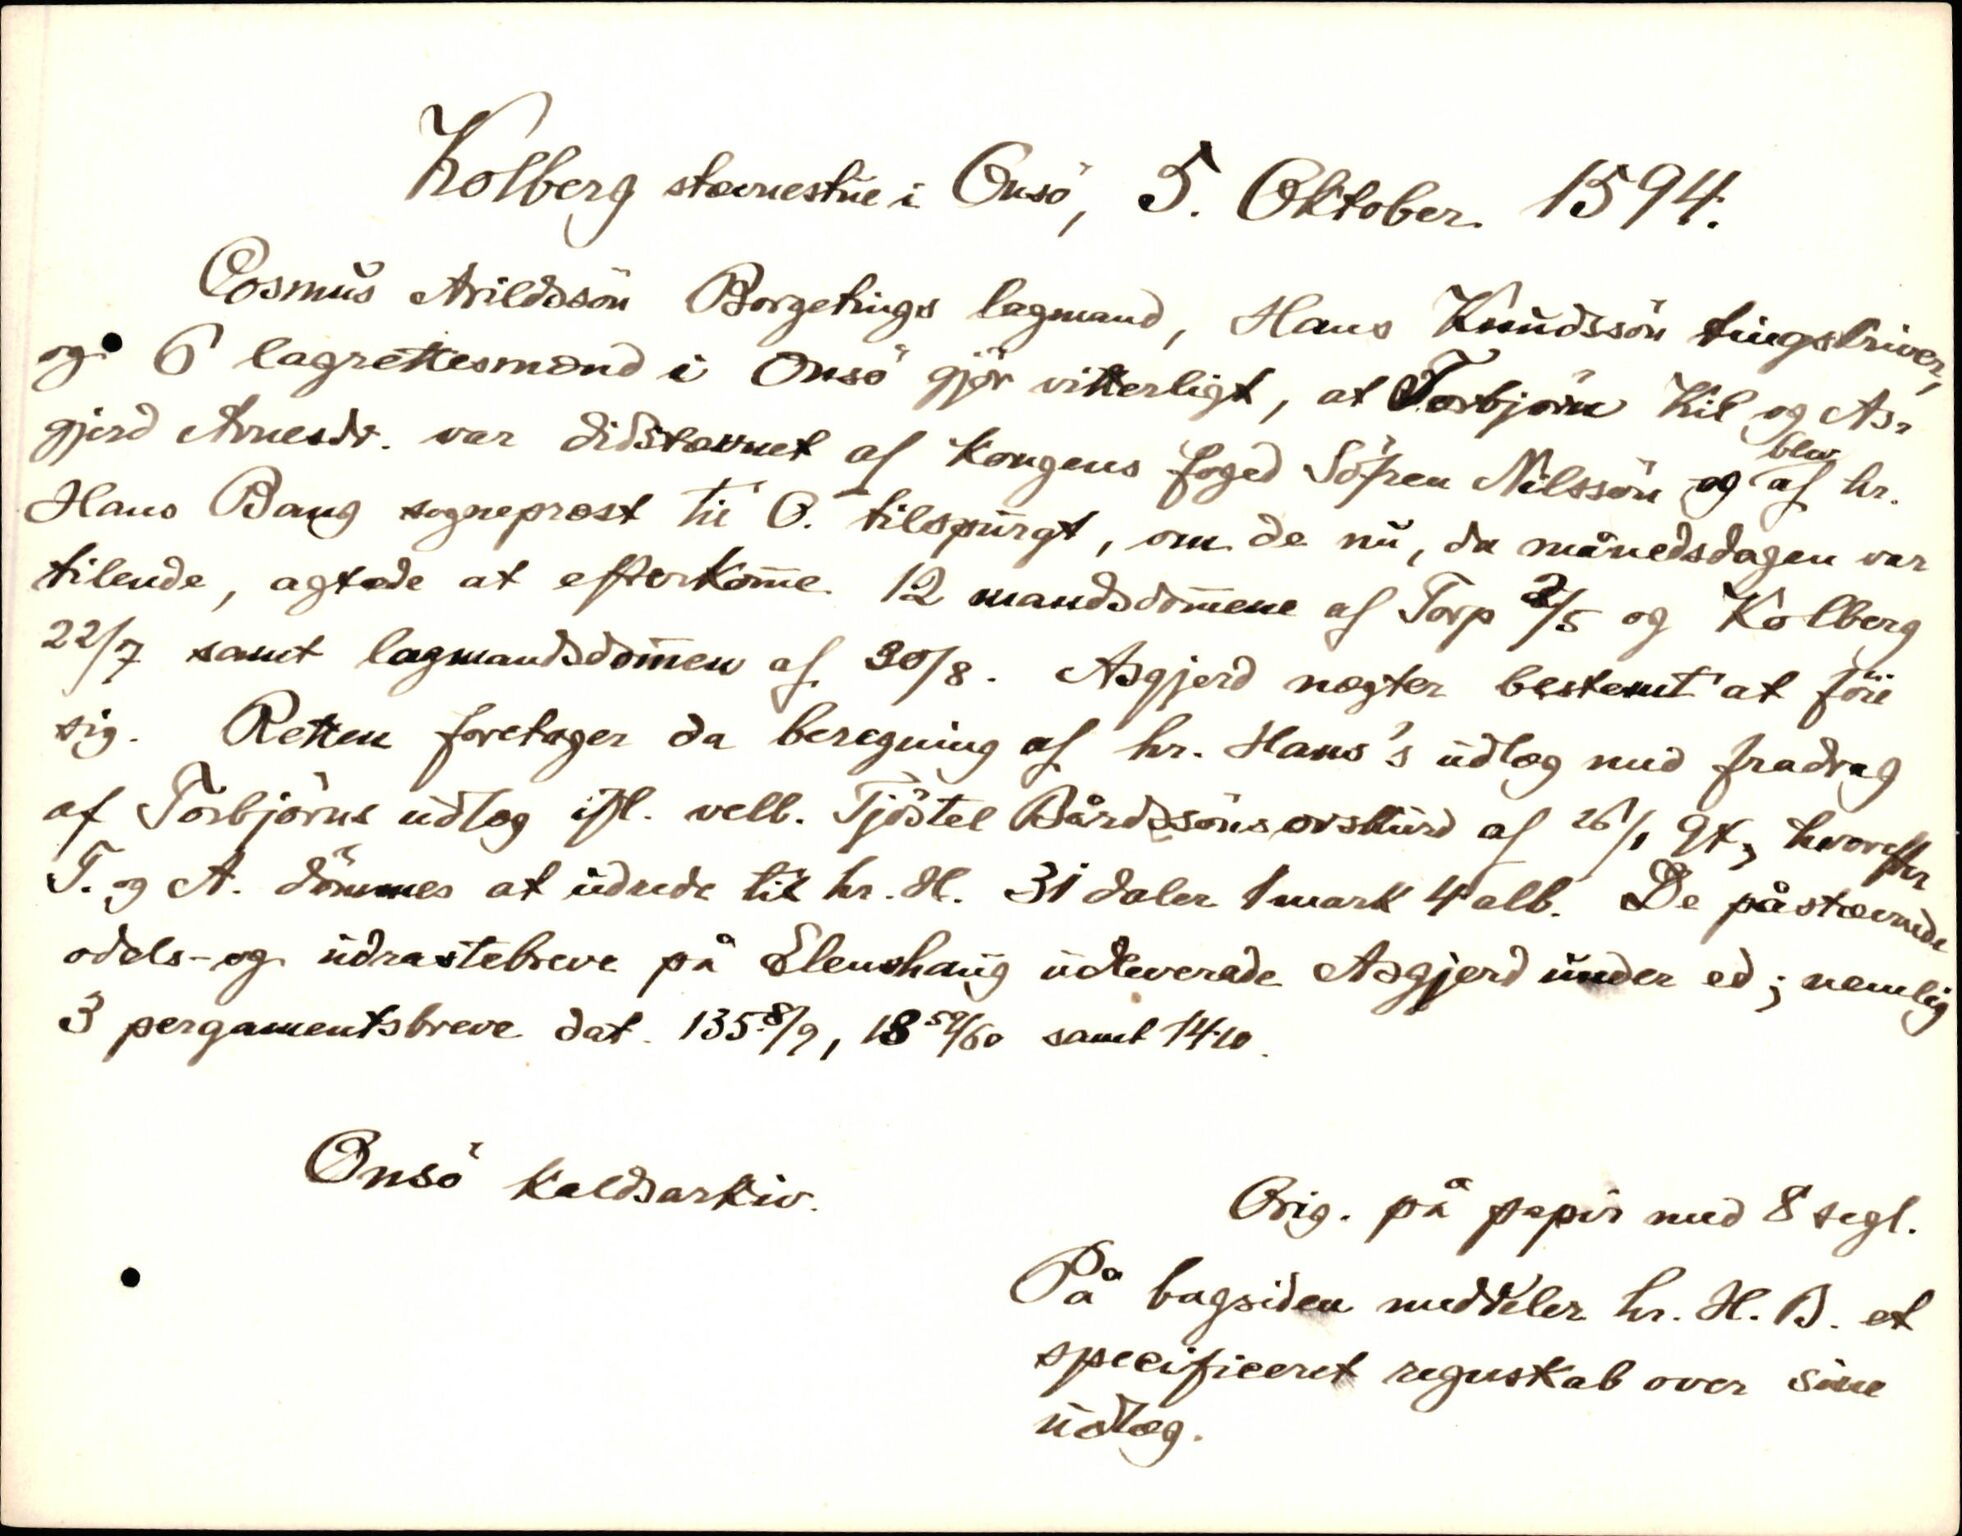 Kolberg stævnestue i Onsö, 5. Oktober 1594.
Cosmus Arildssön Borgetings lagmand, Hans Knudssön tingskriver,
og 6 lagrettesmænd i Onsö gjör vitterligt, at Torbjörn Kil og As-
gjerd Arnesdr. var didstævnet af kongens foged Söfren Nilssön og blev af hr.
Hans Bang sogneprest til O. tilspurgt, om de nu, da månedsdagen var
tilende, agtede at efterkom̅e 12 mandsdom̅ene af Torp 2/5 og Kolberg
22/7 samt lagmandsdom̅en af 30/8. Asgjerd nægter bestemt at föie
sig. Retten foretager da beregning af hr. Hans's udlæg med fradrag
af Torbjörns udlæg ifl. velb. Tjöstel Bårdssöns orskurd af 26/1 94, hvorefter
T. og A. dömmes at udrede til hr. H. 31 daler 1 mark 4 alb. De påstævnede
odels- og udrastebreve på Elenshaug udleverede Asgjerd under ed; nemlig
3 pergamentsbreve dat. 1358/9, 1359/60 samt 1410.
Onsö kaldsarkiv.
Orig. på papir med 8 segl.
På bagsiden meddeler hr. H. B. et
specificeret regnskab over sine
udlæg.